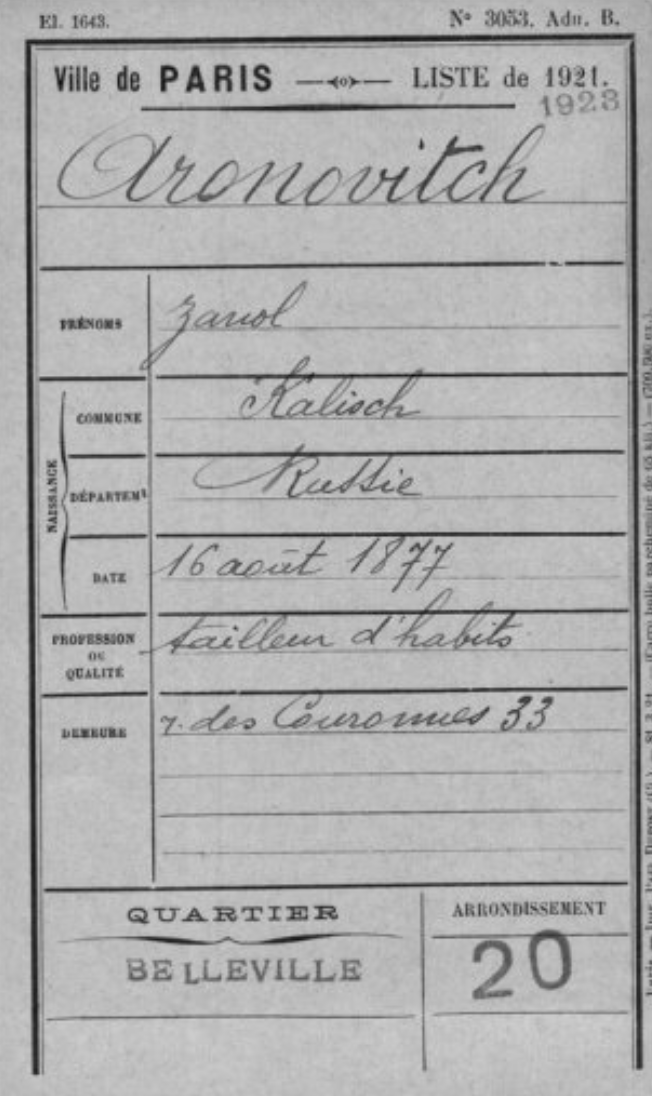 El. 1643.
N° 3053. Adn. B.
Ville de PARIS LISTE de 1921.
1923
Aronovitch
PRÉNOMS
Zanol
NAISSANCE
COMMUNE
Kalisch
DÉPARTEMt
Russie
DATE
16 août 1877
PROFESSION
OU
QUALITÉ
tailleur d'habits
DEMEURE
r. des Couronnes 33
QUARTIER
BELLEVILLE
ARRONDISSEMENT
20